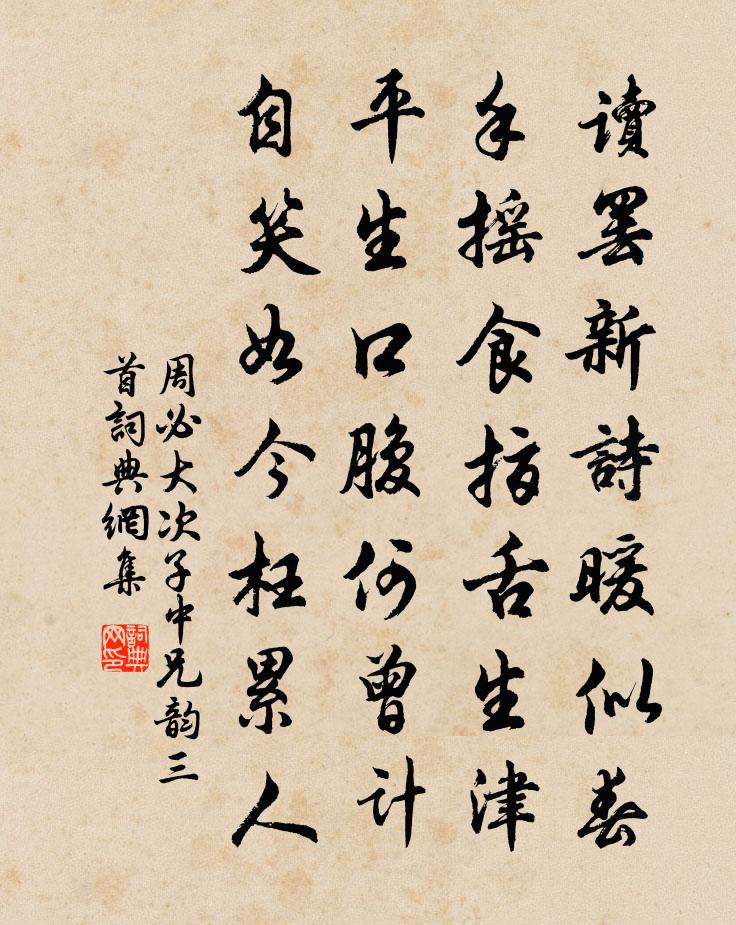 讀罷新詩暖似春
手摇食指舌生津
平生口腹何曾計
自笑如今枉累人
周必大次子中兄韵三
首詞典網集
詞典網印